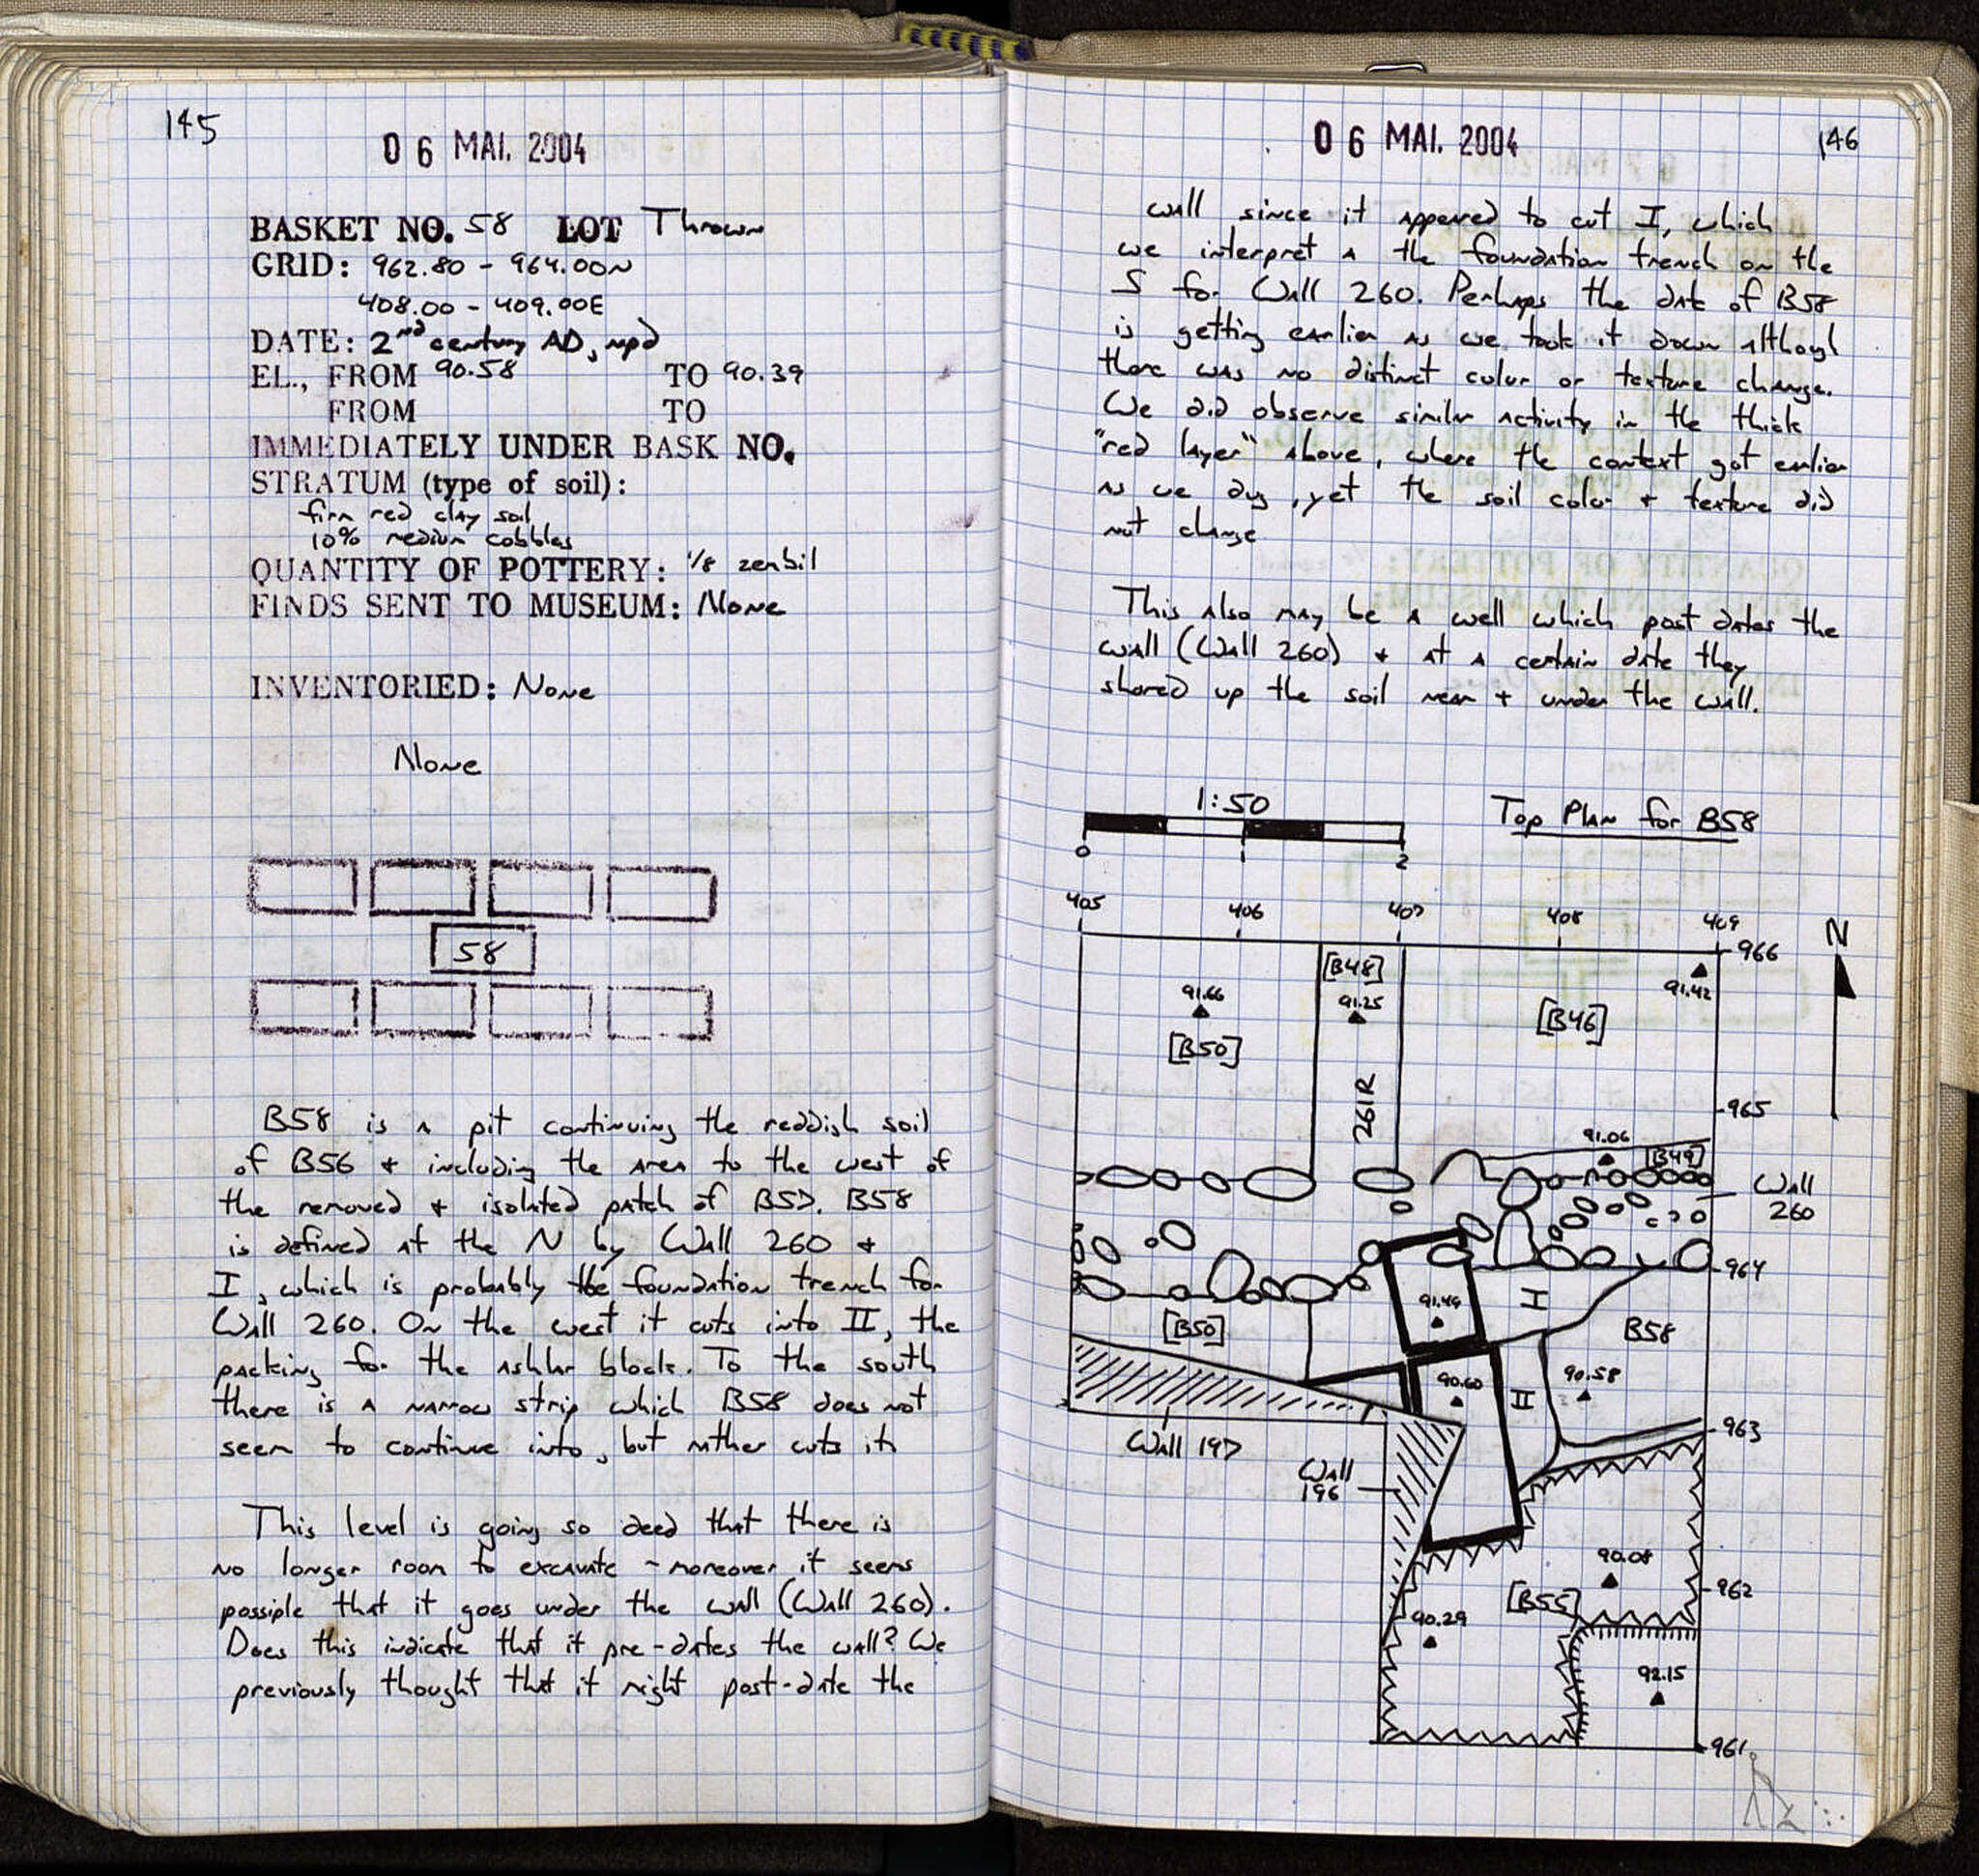 145
06 MAI. 2004
BASKET NO. 58 LOT Thrown
GRID: 962.80 - 964.00N
408.00 - 409.00E
DATE: 2nd century AD, mpd
EL., FROM 90.58 TO 90.39
FROM TO
IMMEDIATELY UNDER BASK NO.
STRATUM (type of soil):
firm red clay soil
10% medium cobbles
QUANTITY OF POTTERY: 1/8 zenbil
FINDS SENT TO MUSEUM: None
INVENTORIED: None
None
58
B58 is a pit continuing the reddish soil
of B56 + including the area to the west of
the removed + isolated patch of B57. B58
is defined at the N by Wall 260 +
I, which is probably the foundation trench for
Wall 260. On the west it cuts into II, the
packing for the ashlar block. To the south
there is a narrow strip which B58 does not
seem to continue into, but rather cuts it
This level is going so deed that there is
no longer room to excavate - moreover it seems
possiple that it goes under the wall (Wall 260).
Does this indicate that it pre-dates the wall? We
previously thought that it might post-date the
06 MAI. 2004
146
wall since it appeared to cut I, which
we interpret a the foundation trench on the
S for Wall 260. Perhaps the date of B58
is getting earlier as we took it down although
there was no distinct color or texture change.
We did observe similar activity in the thick
"red layer" above, where the context got earlier
as we dug, yet the soil color + texture did
not change
This also may be a well which post dates the
wall (Wall 260) + at a certain date they
shored up the soil near + under the wall.
1:50
Top Plan for B58
0 1 2
405 406 407 408 409
N
966
[B48]
91.66
91.25
91.42
[B50]
[B46]
261R
965
91.06
[B49]
Wall
260
964
91.49
I
[B50]
B58
90.60
II
90.58
963
Wall 197
Wall
196
90.08
962
[B55]
90.29
92.15
961